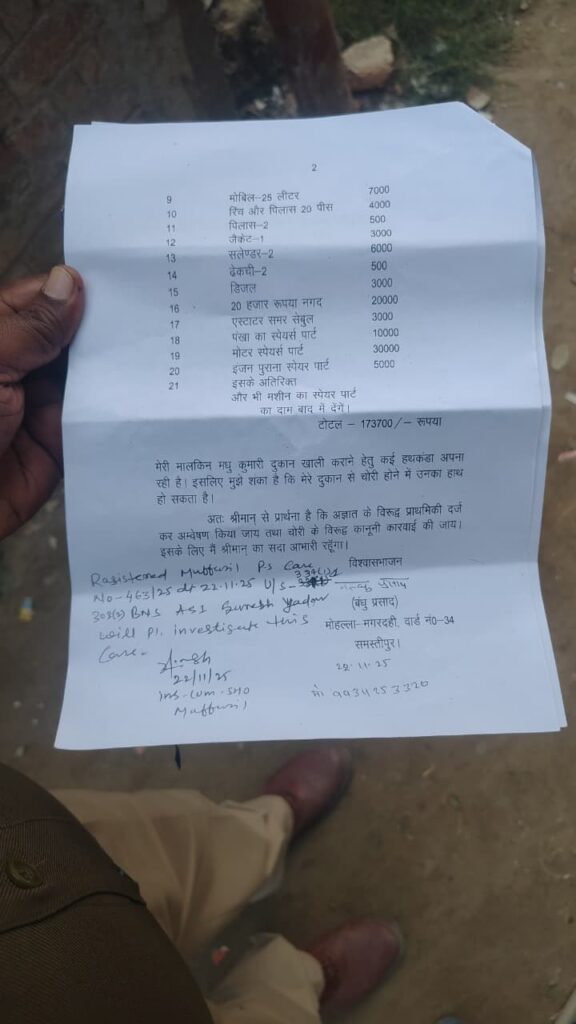 2
9 मोबिल-25 लीटर 7000
10 रिंच और पिलास 20 पीस 4000
11 पिलास-2 500
12 जैकेट-1 3000
13 सलेण्डर-2 6000
14 ढेकची-2 500
15 डिजल 3000
16 20 हजार रूपया नगद 20000
17 एस्टाटर समर सेबुल 3000
18 पंखा का स्पेयर्स पार्ट 10000
19 मोटर स्पेयर्स पार्ट 30000
20 इंजन पुराना स्पेयर पार्ट 5000
21 इसके अतिरिक्त
और भी मशीन का स्पेयर पार्ट
का दाम बाद में देंगें।
टोटल - 173700/- रूपया
मेरी मालकिन मधु कुमारी दुकान खाली कराने हेतु कई हथकंडा अपना
रही है। इसलिए मुझे शका है कि मेरे दुकान से चोरी होने में उनका हाथ
हो सकता है।
अतः श्रीमान् से प्रार्थना है कि अज्ञात के विरूद्व प्राथमिकी दर्ज
कर अन्वेषण किया जाय तथा चोरी के विरूद्ध कानूनी कारवाई की जाय।
इसके लिए मैं श्रीमान् का सदा आभारी रहूँगा।
विश्वासभाजन
Registered Muffusil P.S Case
No-463/25 dt 22.11.25 U/S-
303(2) BNS ASI Suresh Yadav
will Pl. investigate this
Case.
22/11/25
Ins-cum-SHO
Muffusil
(बंधु प्रसाद)
मोहल्ला-मगरदही, वार्ड नं0-34
समस्तीपुर।
22.11.25
मो 9934253320